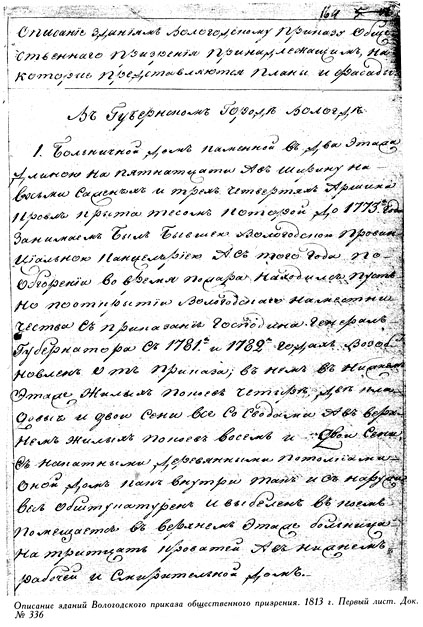 169
Описание зданіямъ Вологодскому Приказу Обще
ственнаго призрения принадлежащимъ, на
которые представляются планы и фасады
Въ Губернскомъ Городѣ Вологдѣ.
1. Больничной домъ каменной въ два этажа
длиною на пятнатцати а въ ширину на
восьми саженъ и трехъ четвертяхъ аршина
кровля крыта тесомъ которой до 1773го года
занимаемъ былъ бывшею Вологодской провин
ціальною канцеляріею а съ того года по
обгорении во время пожара находился пустъ
но по открытіи Вологодскаго наместни
чества с приказанія Господина Генералъ
Губернатора с 1781го и 1782го годахъ возоб
новленъ отъ приказа; въ немъ в нижнемъ
этаже жилых покоевъ четыре, две кла
довыя и двои сени все со сводами а въ верх
немъ жилыхъ покоевъ восемь и двои сени,
съ накатными деревянными потолками
оной домъ какъ внутри такъ и с наружи
весь обштукатуренъ и выбеленъ в коемъ
помещается въ верхнемъ этаже больница
на тритцать кроватей а въ нижнемъ
рабочей и смирительной домъ.
Описание зданий Вологодского приказа общественного призрения. 1813 г. Первый лист. Док.
№ 336